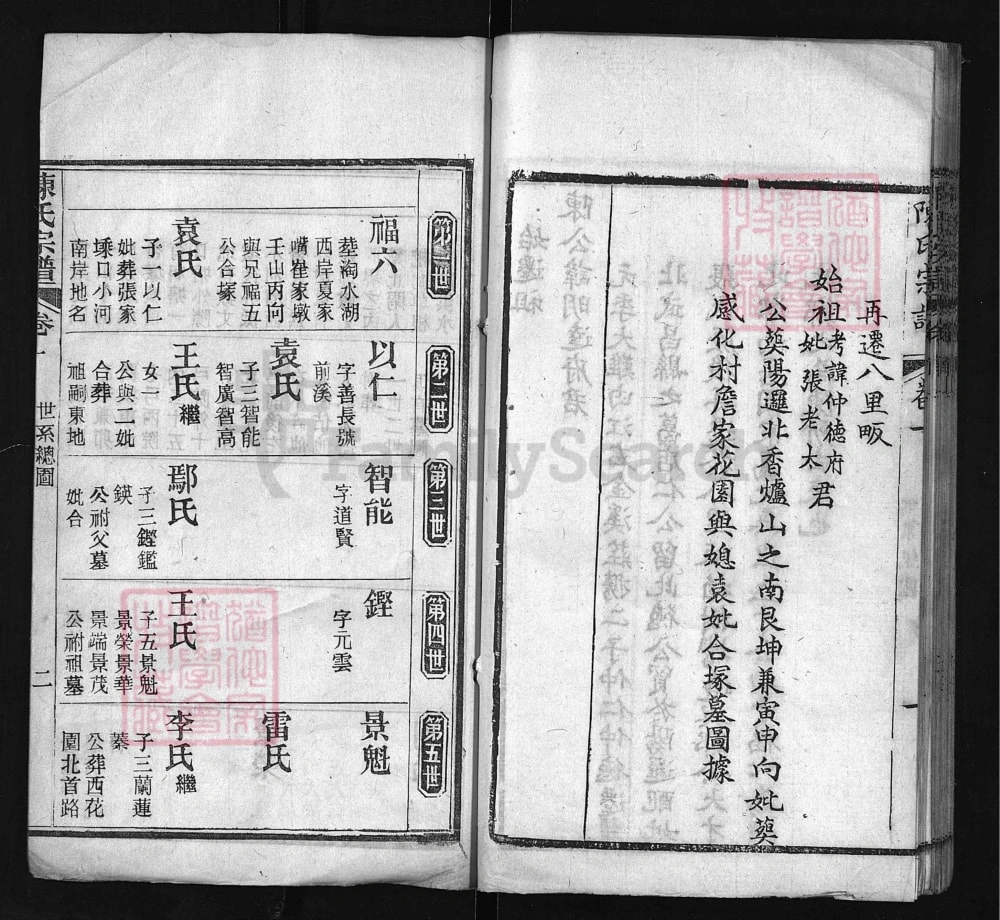 陳氏宗譜
卷一
一
再遷八里畈
始祖考諱仲德府
妣張老太君
公葬陽邏北香爐山之南艮坤兼寅申向妣葬
感化村詹家花園與媳袁妣合塚墓圖據
第一世
福六
葬淘水湖
西岸夏家
嘴崔家墩
壬山丙向
與兄福五
公合塚
袁氏
子一以仁
妣葬張家
塚口小河
南岸地名
第二世
以仁
字善長號
前溪
袁氏
子三智能
智廣智高
王氏繼
女一
公與二妣
合葬
祖嗣東地
第三世
智能
字道賢
鄢氏
子三鏗鑑
鍈
公祔父墓
妣合
第四世
鏗
字元雲
王氏
子五景魁
景榮景華
景端景茂
公祔祖墓
第五世
景魁
雷氏
李氏繼
子三蘭蓮
蓁
公葬西花
園北首路
陳氏宗譜
卷一
世系總圖
二
FamilySearch